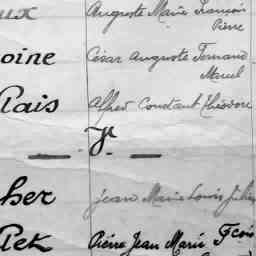 ux Auguste Marie François
Pierre
oine César Auguste Fernand
Marcel
Plais Alfred Constant Théodore
J
cher Jean Marie Louis Julien
Pet Pierre Jean Marie Fçois